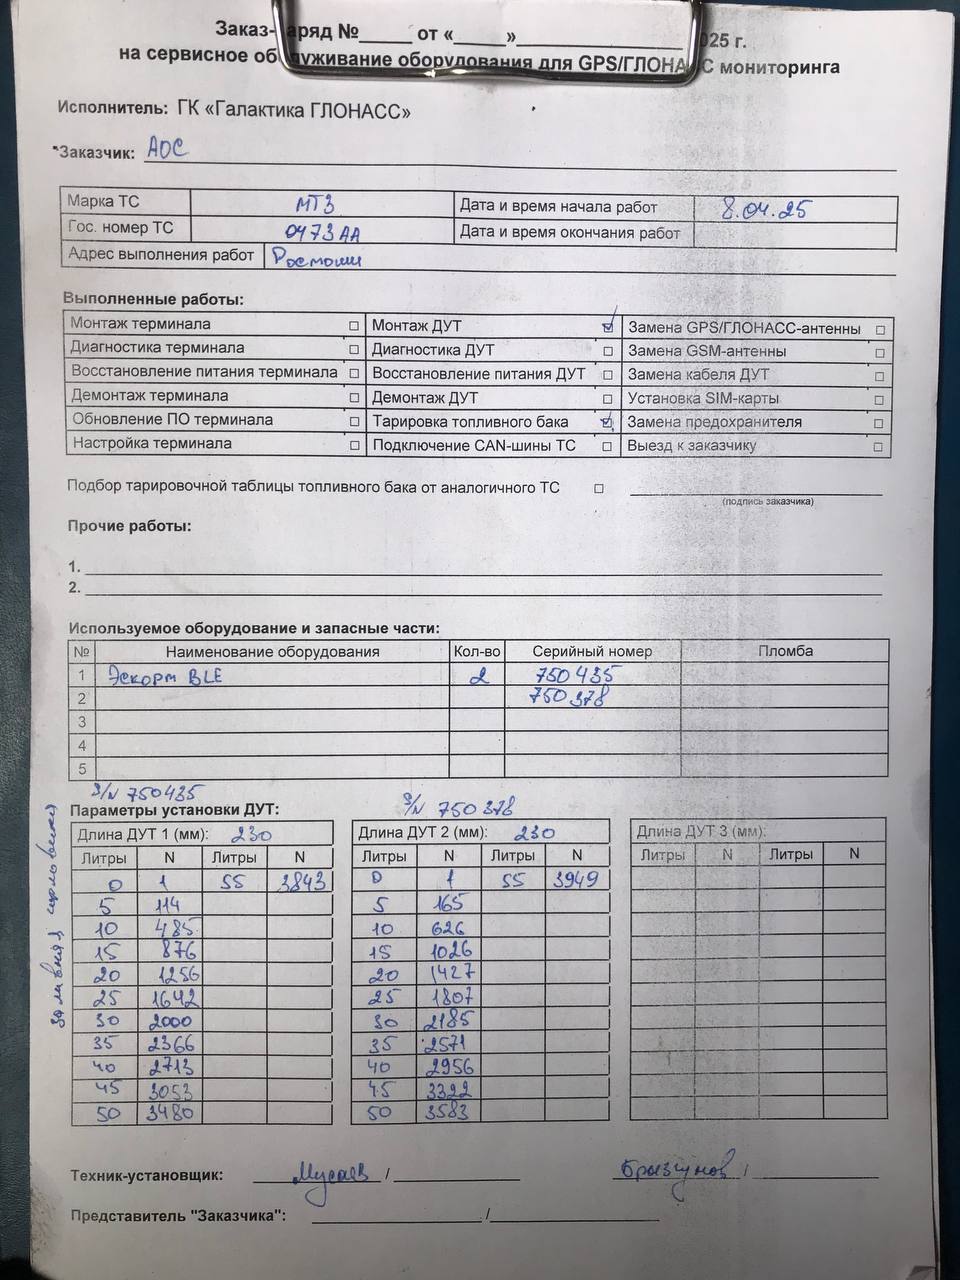 Заказ-наряд №_____ от «_____»________________ 2025 г.
на сервисное обслуживание оборудования для GPS/ГЛОНАСС мониторинга
Исполнитель: ГК «Галактика ГЛОНАСС»
*Заказчик: АОС
Марка ТС МТЗ Дата и время начала работ 8.04.25
Гос. номер ТС 0473 АА Дата и время окончания работ
Адрес выполнения работ Росмаши
Выполненные работы:
Монтаж терминала □ Монтаж ДУТ ☑ Замена GPS/ГЛОНАСС-антенны □
Диагностика терминала □ Диагностика ДУТ □ Замена GSM-антенны □
Восстановление питания терминала □ Восстановление питания ДУТ □ Замена кабеля ДУТ □
Демонтаж терминала □ Демонтаж ДУТ □ Установка SIM-карты □
Обновление ПО терминала □ Тарировка топливного бака ☑ Замена предохранителя □
Настройка терминала □ Подключение CAN-шины ТС □ Выезд к заказчику □
Подбор тарировочной таблицы топливного бака от аналогичного ТС □
(подпись заказчика)
Прочие работы:
1.
2.
Используемое оборудование и запасные части:
№ Наименование оборудования Кол-во Серийный номер Пломба
1 Эскорт BLE 2 750435
2 750378
3
4
5
S/N 750435 S/N 750378
Параметры установки ДУТ:
Длина ДУТ 1 (мм): 230 Длина ДУТ 2 (мм): 230 Длина ДУТ 3 (мм):
Литры N Литры N Литры N Литры N Литры N Литры N
0 1 55 3843 0 1 55 3949
5 114 5 165
10 485 10 626
15 876 15 1026
20 1256 20 1427
25 1642 25 1807
30 2000 30 2185
35 2366 35 2571
40 2713 40 2956
45 3053 45 3322
50 3480 50 3583
Техник-установщик: Мусаев / Брызгунов /
Представитель "Заказчика": /